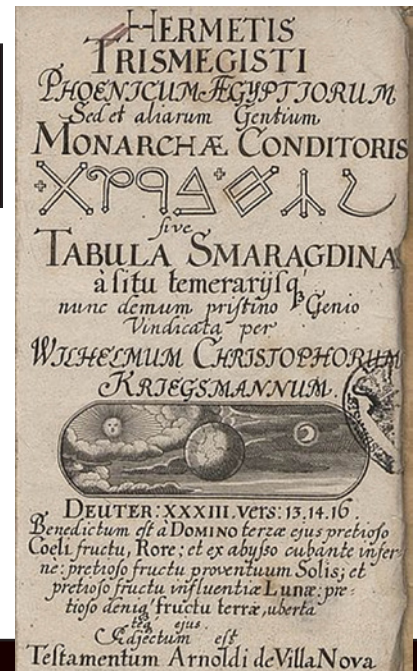 HERMETIS
TRISMEGISTI
PHOENICUM ÆGYPTIORUM
Sed et aliarum Gentium
MONARCHÆ CONDITORIS
sive
TABULA SMARAGDINA
à situ temerarijsq́
nunc demum pristino Genio
Vindicata per
WILHELMUM CHRISTOPHORUM
KRIEGSMANNUM.
DEUTER: XXXIII. vers: 13. 14. 16.
Benedictum est à DOMINO terræ ejus pretioso
Coeli fructu, Rore; et ex abysso cubante infer-
ne: pretioso fructu proventuum Solis; et
pretioso fructu influentiæ Lunæ: pre-
tioso deniq́ fructu terræ, uberta
teq́ ejus.
Adjectum est
Testamentum Arnoldi de Villa Nova